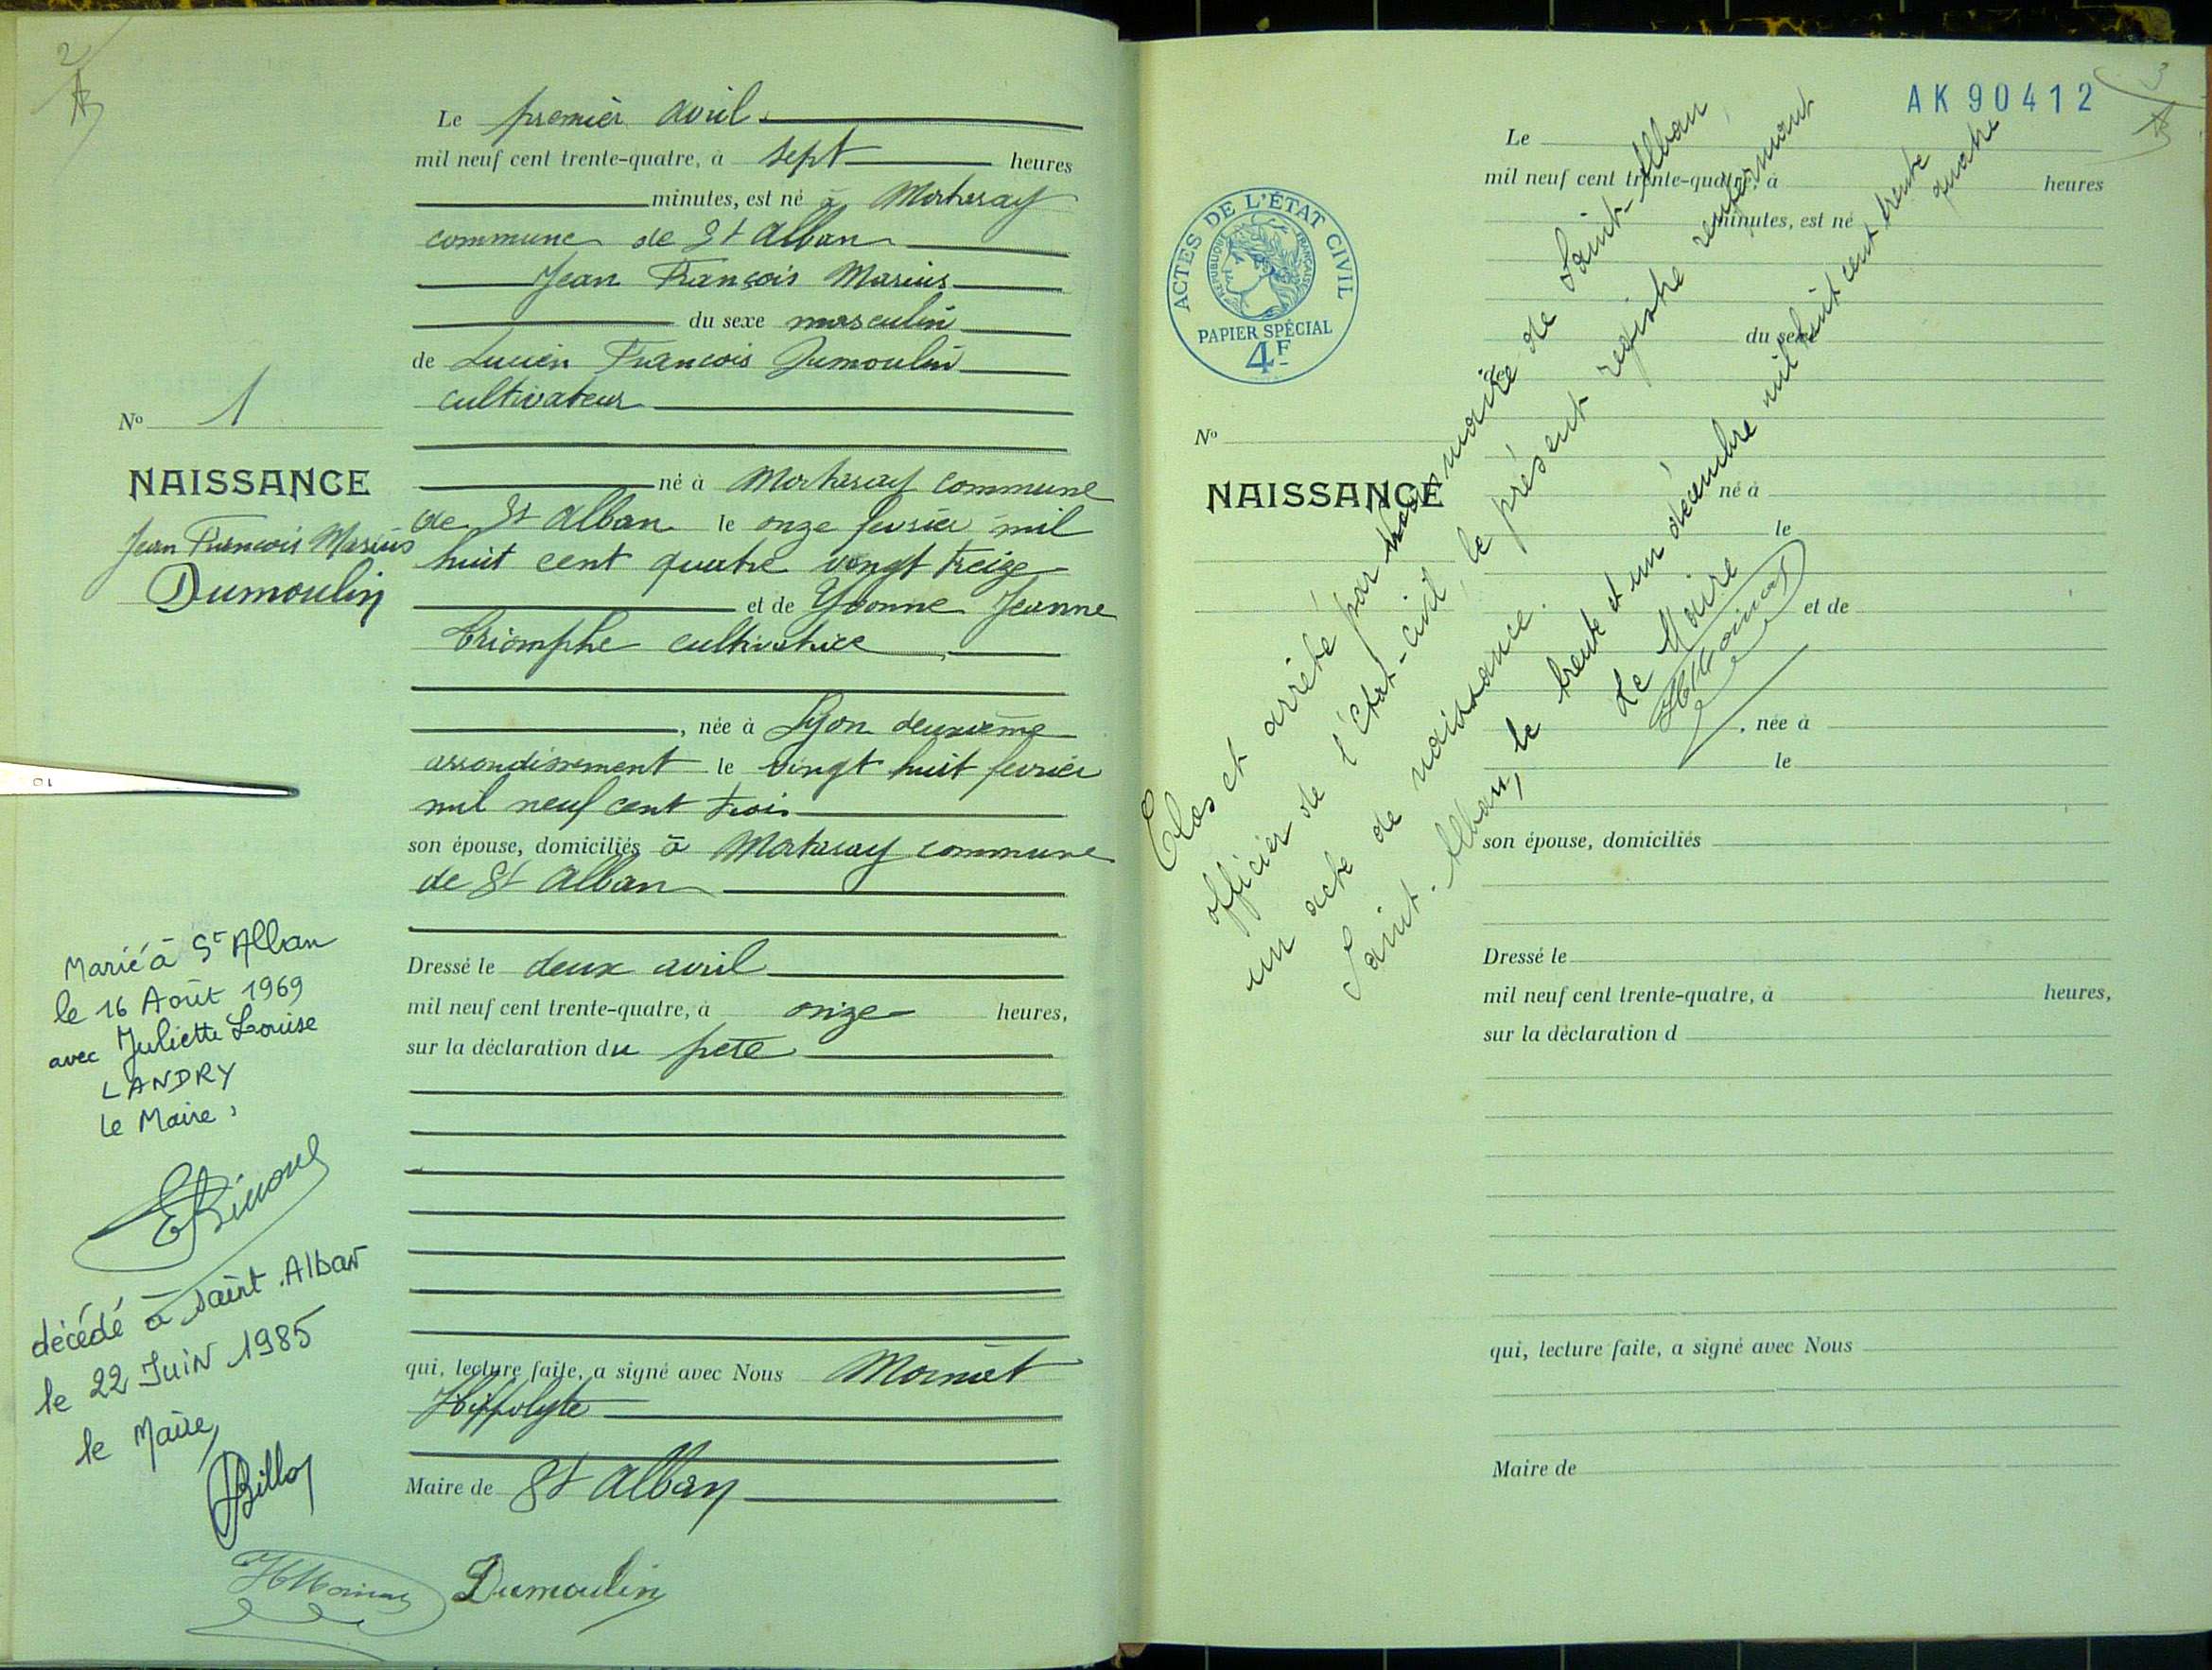 2
Le premier avril
mil neuf cent trente-quatre, à sept heures
minutes, est né à Morteray
commune de St Alban
Jean François Marius
du sexe masculin
de Lucien François Dumoulin
cultivateur
né à Morteray commune
de St Alban le onze fevrier mil
huit cent quatre vingt treize
et de Yvonne Jeanne
Triomphe cultivatrice
, née à Lyon deuxième
arrondissement le vingt huit fevrier
mil neuf cent trois
son épouse, domiciliés à Morteray commune
de St Alban
Dressé le deux avril
mil neuf cent trente-quatre, à onze heures,
sur la déclaration du père
qui, lecture faite, a signé avec Nous
Hippolyte
Maire de St Alban
Dumoulin
No 1
NAISSANCE
Jean François Marius
Dumoulin
Marié à St Alban
le 16 Août 1969
avec Juliette Louise
LANDRY
le Maire,
décédé à Saint Alban
le 22 Juin 1985
le Maire,
3
AK 90412
ACTES DE L'ÉTAT CIVIL
RÉPUBLIQUE FRANÇAISE
PAPIER SPÉCIAL
4F
No
NAISSANCE
Le
mil neuf cent trente-quatre, à heures
minutes, est né
du sexe
de
né à
le
et de
, née à
le
son épouse, domiciliés
Dressé le
mil neuf cent trente-quatre, à heures,
sur la déclaration d
qui, lecture faite, a signé avec Nous
Maire de
Clos et arrêté par maire de Saint-Alban
officier de l'état-civil, le présent registre renfermant
un acte de naissance.
Saint-Alban, le trente et un décembre mil huit cent trente
quatre
Le Maire